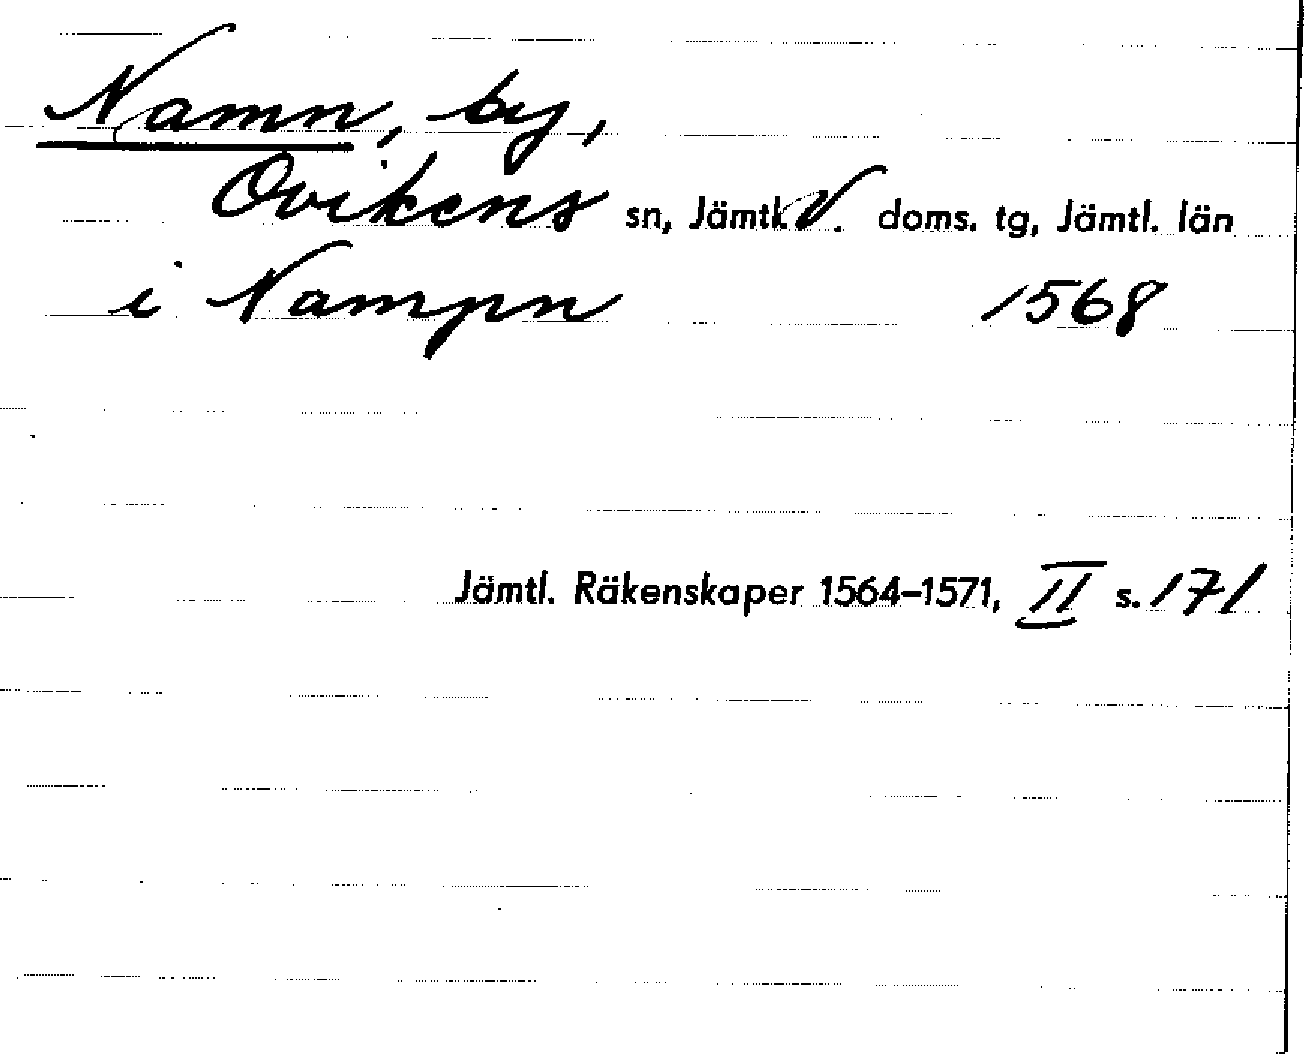 Namn, by,
Ovikens sn, Jämtl. V. doms. tg, Jämtl. län
i Nampn 1568
Jämtl. Räkenskaper 1564–1571, II s. 171